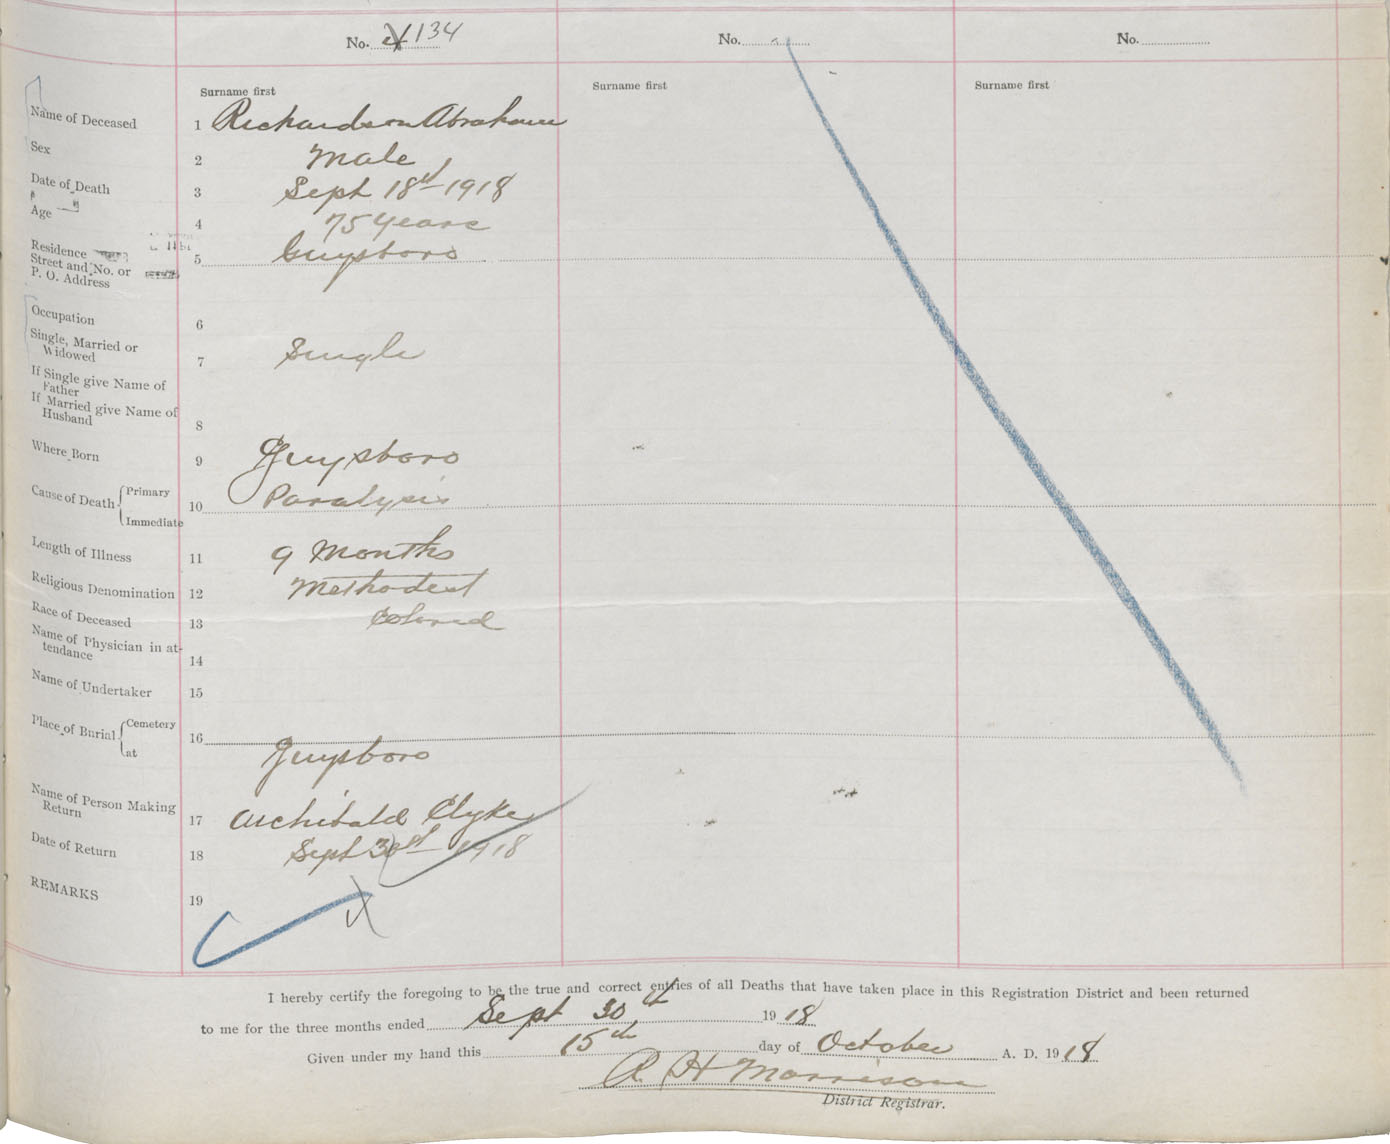 No. 134
No.
No.
Surname first
Surname first
Surname first
Name of Deceased 1 Richardson Abraham
Sex 2 Male
Date of Death 3 Sept 18th 1918
Age 4 75 Years
Residence
Street and No. or
P. O. Address 5 Guysboro
Occupation 6
Single, Married or
Widowed 7 Single
If Single give Name of
Father
If Married give Name of
Husband 8
Where Born 9 Guysboro
Cause of Death Primary
10 Paralysis
Immediate
Length of Illness 11 9 Months
Religious Denomination 12 Methodist
Race of Deceased 13 Colored
Name of Physician in at-
tendance 14
Name of Undertaker 15
Place of Burial Cemetery
16
at Guysboro
Name of Person Making
Return 17 Archibald Clyke
Date of Return 18 Sept 30th 1918
REMARKS 19
I hereby certify the foregoing to be the true and correct entries of all Deaths that have taken place in this Registration District and been returned
to me for the three months ended Sept 30th 1918
Given under my hand this 15th day of October A. D. 1918
A H Morrison
District Registrar.